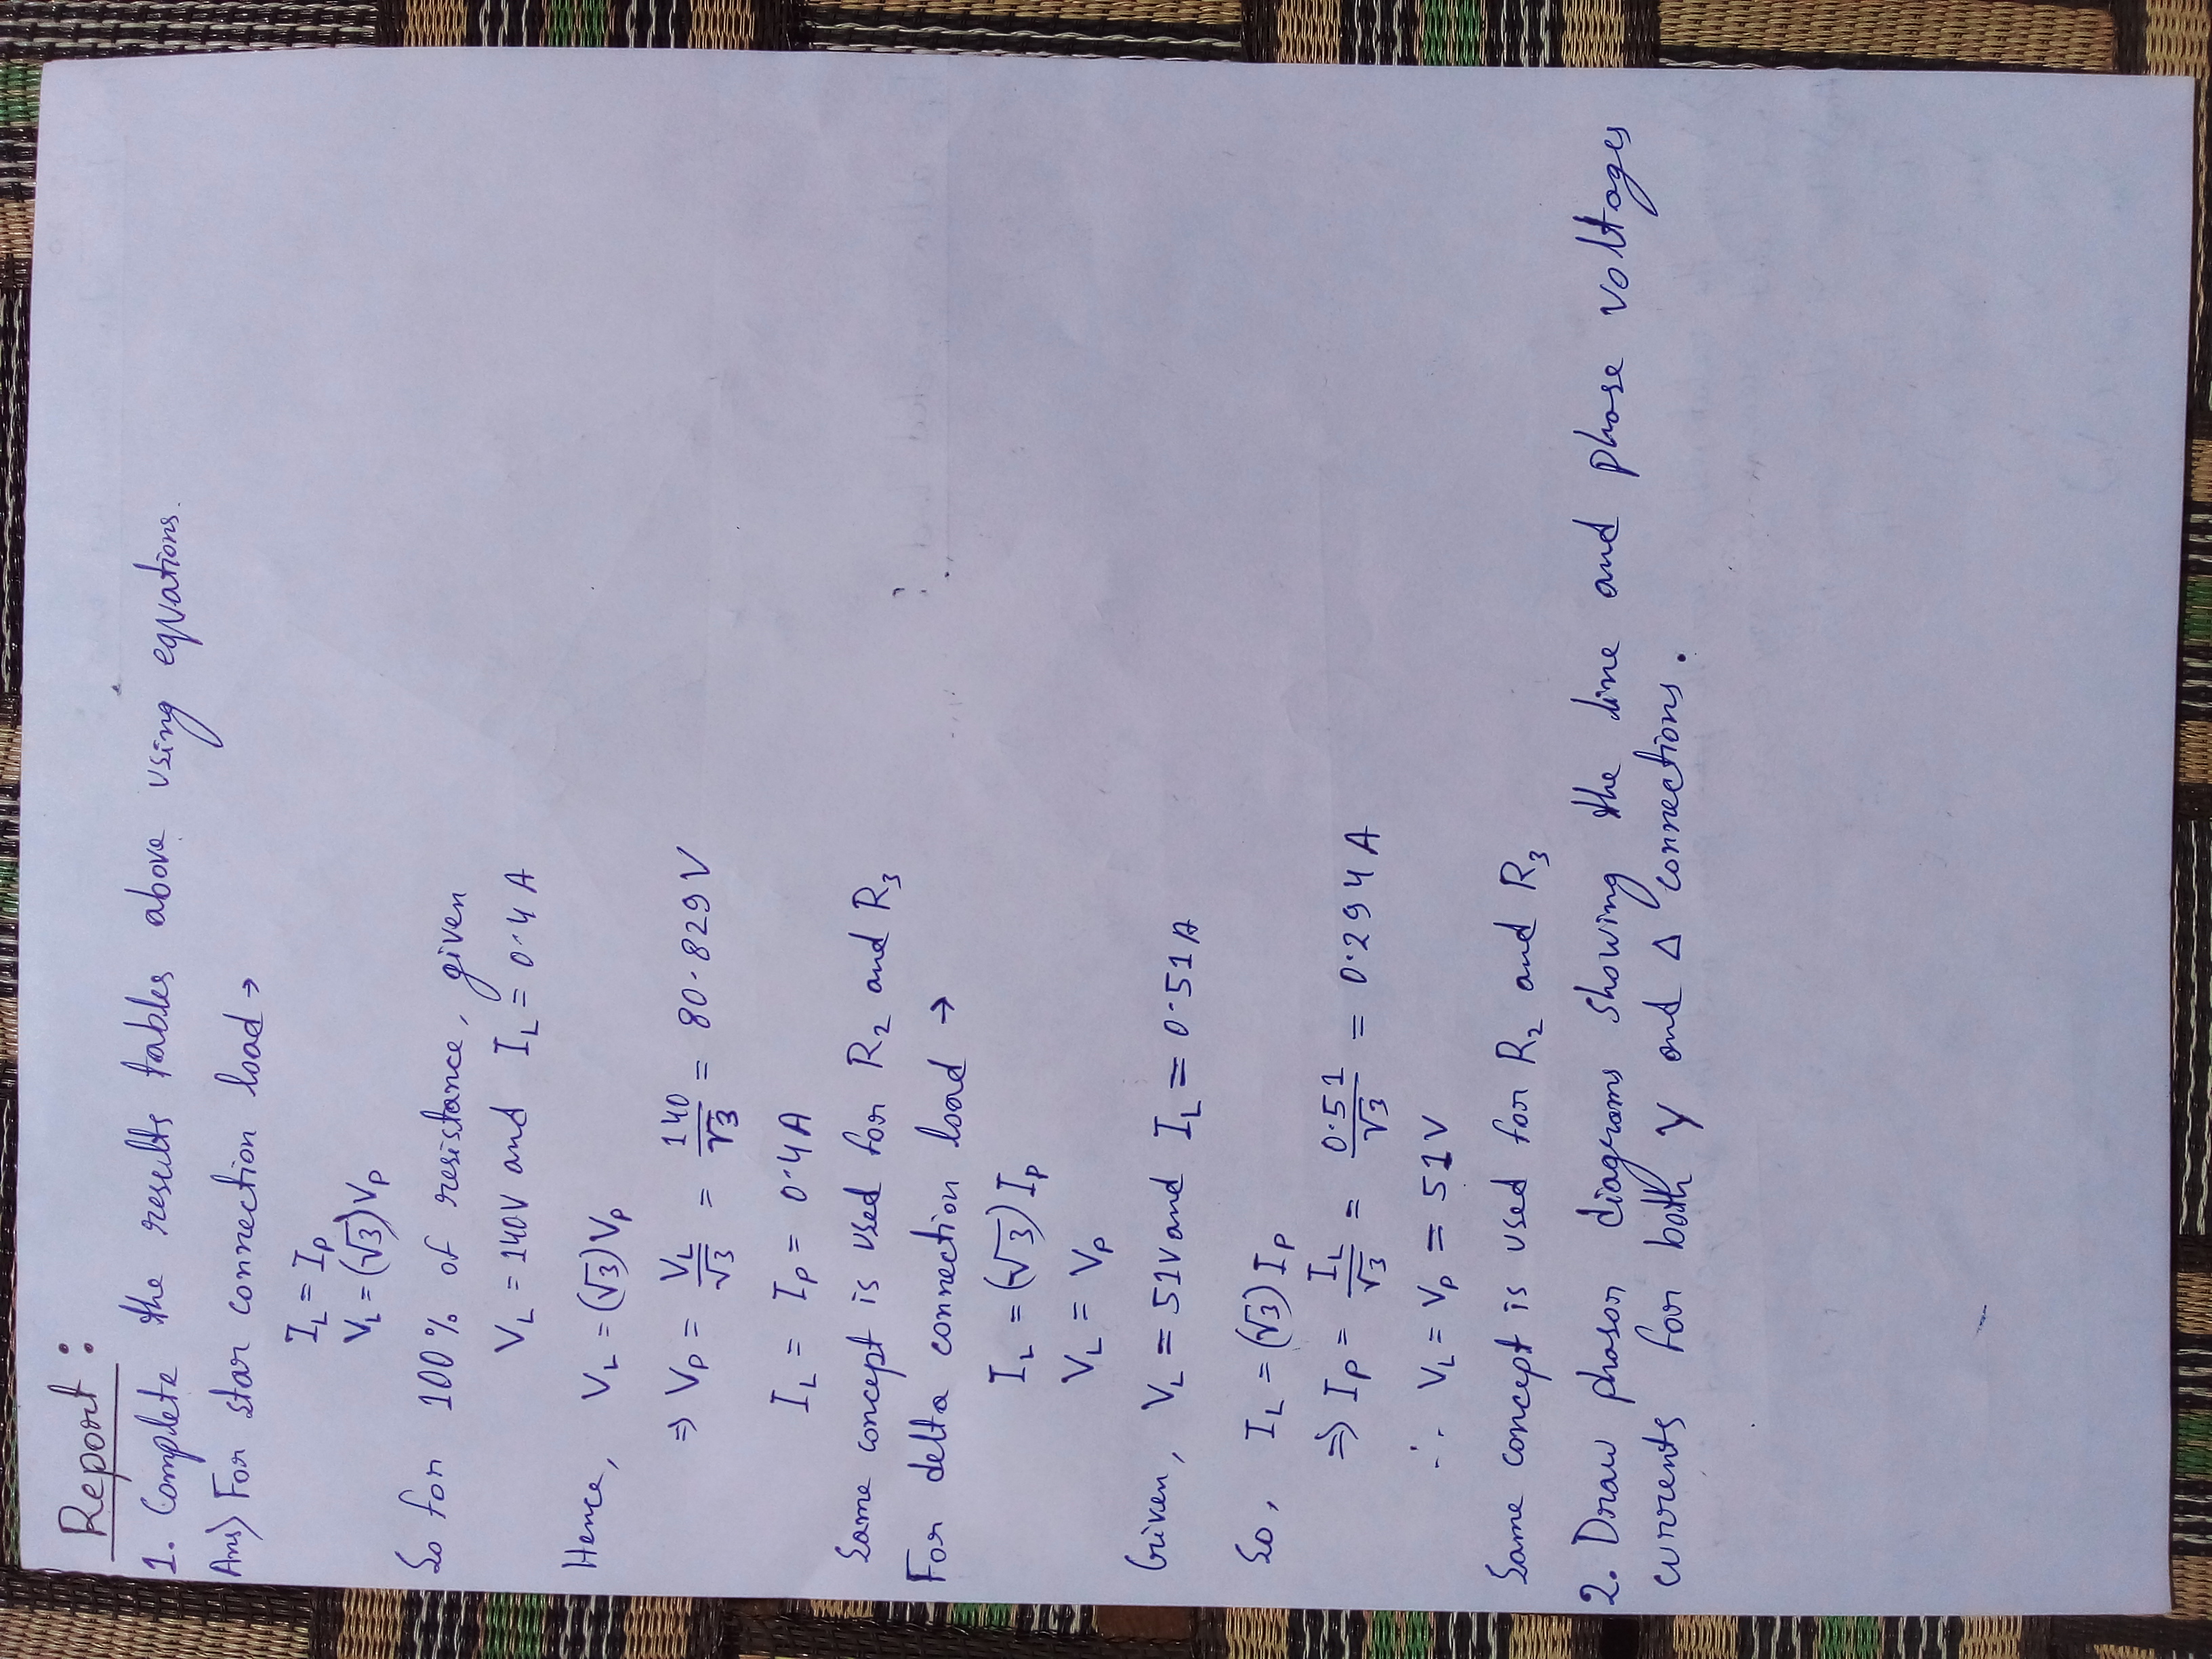 Report :
1. Complete the results tables above using equations.
Ans) For star connection load →
I_L = I_P
V_L = (√3) V_P
So for 100% of resistance, given
V_L = 140V and I_L = 0.4 A
Hence, V_L = (√3) V_P
⇒ V_P = V_L/√3 = 140/√3 = 80.829 V
I_L = I_P = 0.4 A
Same concept is used for R₂ and R₃
For delta connection load →
I_L = (√3) I_P
V_L = V_P
Given, V_L = 51V and I_L = 0.51 A
So, I_L = (√3) I_P
⇒ I_P = I_L/√3 = 0.51/√3 = 0.294 A
∴ V_L = V_P = 51V
Same concept is used for R₂ and R₃
2. Draw phasor diagrams showing the line and phase voltages
currents for both Y and Δ connections.